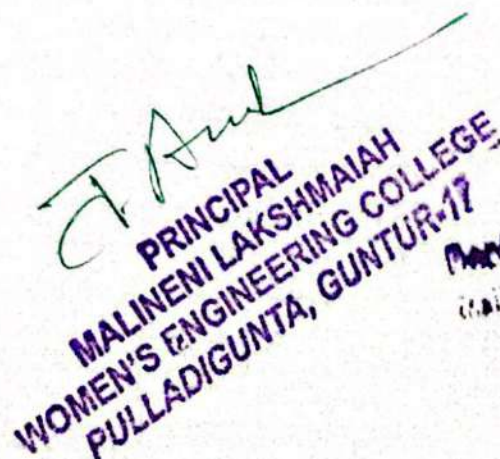 PRINCIPAL
MALINENI LAKSHMAIAH
WOMEN'S ENGINEERING COLLEGE
PULLADIGUNTA, GUNTUR-17